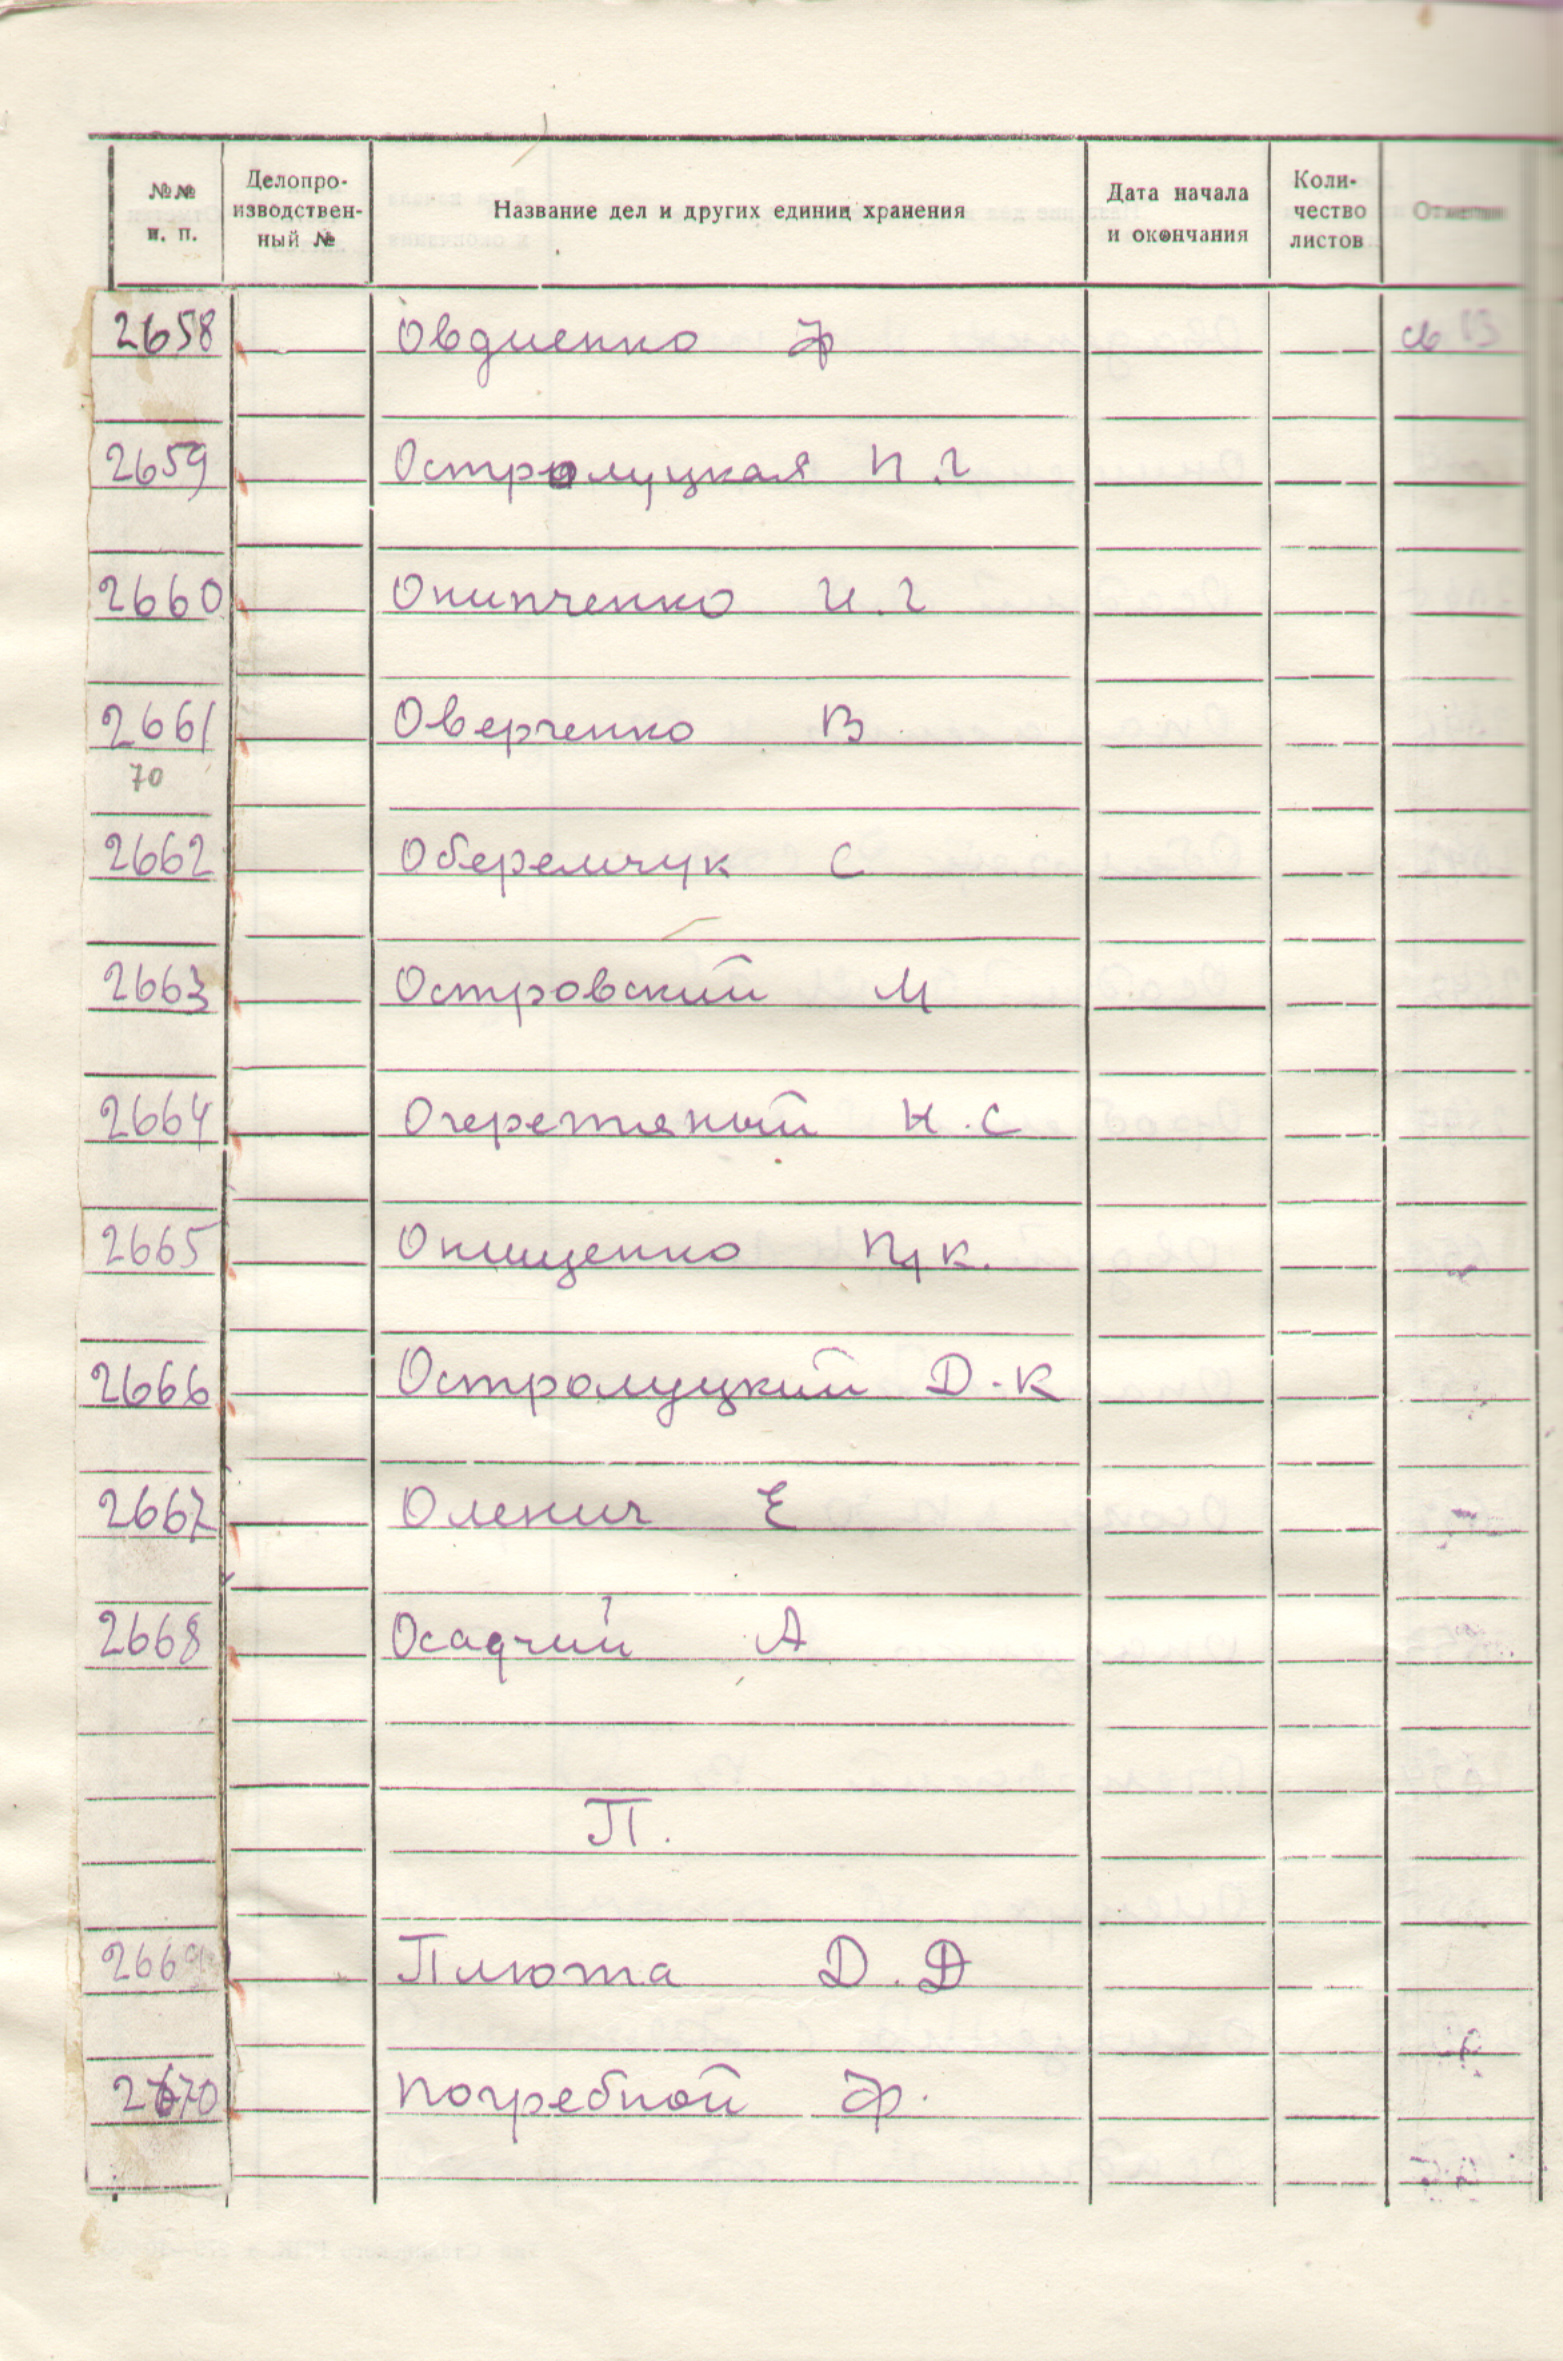 №№ п. п. Делопроизводственный № Название дел и других единиц хранения Дата начала и окончания Количество листов Отметки
2658 Овдиенко Ф
2659 Остролуцкая П.Г
2660 Онипченко И.Г
2661 Оверченко В
70
2662 Оберемчук С
2663 Островский М
2664 Очеретяный Н.С
2665 Онищенко П К.
2666 Остролуцкий Д.К
2667 Оленич Е
2668 Осадчий А
П.
2669 Плюта Д.Д
2670 Погребной Ф.